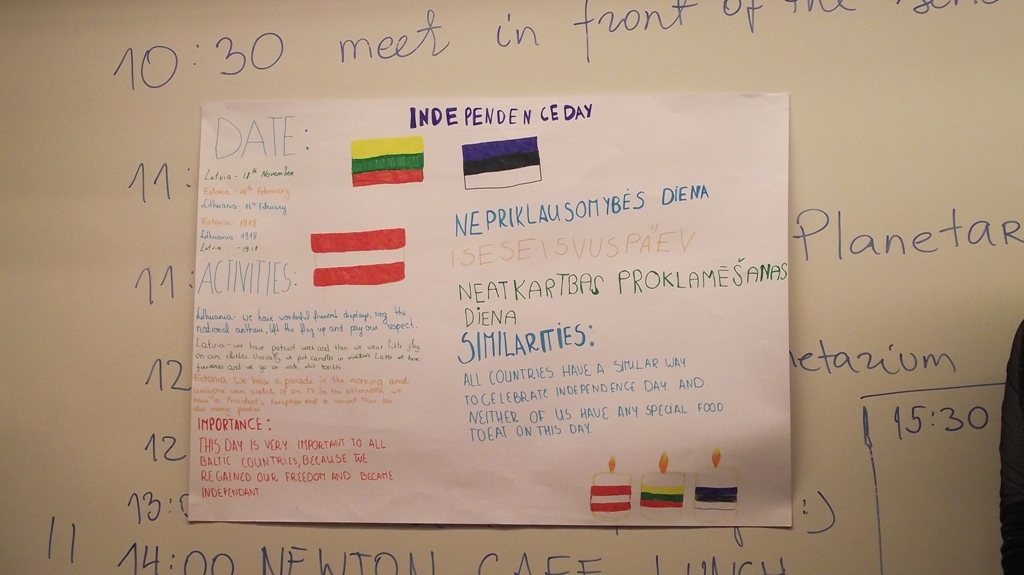 10:30 meet in front of the
INDEPENDENCE DAY
DATE:
Latvia - 18th November
Estonia - 24th February
Lithuania - 16th February
Estonia - 1918
Lithuania - 1918
Latvia - 1918
ACTIVITIES:
Lithuania - We have wonderful firework displays, sing the
national anthem, lift the flag up and pay our respect.
Latvia - we have patriot week and then we wear little
on our clothes. Usually we put candles in windows. Later we have
fireworks and we go on walk with
Estonia. We have a parade in the morning and
everyone can watch it on TV. In the afternoon, we
have a President's Reception and a concert. There are
also many parties.
IMPORTANCE:
THIS DAY IS VERY IMPORTANT TO ALL
BALTIC COUNTRIES, BECAUSE WE
REGAINED OUR FREEDOM AND BECAME
INDEPENDANT.
NEPRIKLAUSOMYBĖS DIENA
ISESEISVUSPÄEV
NEATKARTBAS PROKLAMĒŠANAS
DIENA
SIMILARITIES:
ALL COUNTRIES HAVE A SIMILAR WAY
TO CELEBRATE INDEPENDENCE DAY AND
NEITHER OF US HAVE ANY SPECIAL FOOD
TO EAT ON THIS DAY.
11:
Planetar
11:
12
netarium
15:30
12
13:
:)
11
14:00 NEWTON CAFE LUNCH